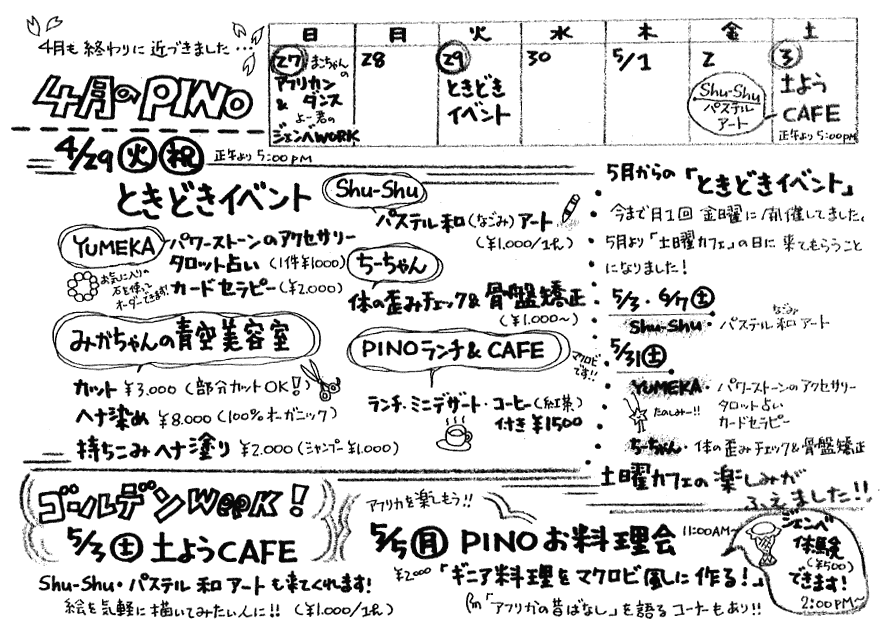 4月も終わりに近づきました…
4月のPINO
日 月 火 水 木 金 土
27 まこちゃんの
アフリカン
& ダンス
よー君の
ジェンベWORK
28
29
ときどき
イベント
30
5/1
2
Shu-Shu
パステル
アート
3
土よう
CAFE
正午より5:00PM
4/29 火 祝 正午より5:00PM
ときどきイベント
YUMEKA
パワーストーンのアクセサリー
タロット占い (1件¥1000)
カードセラピー (¥2.000)
お気に入りの
石を使って
オーダーできます!
みかちゃんの青空美容室
カット ¥3.000 (部分カットOK!)
ヘナ染め ¥8.000 (100%オーガニック)
持ちこみヘナ塗り ¥2.000 (シャンプー¥1.000)
Shu-Shu
パステル和(なごみ)アート
(¥1.000/1枚)
ちーちゃん
体の歪みチェック&骨盤矯正
(¥1.000〜)
PINOランチ&CAFE
マクロビ
です!!
ランチ・ミニデザート・コーヒー(紅茶)
付き ¥1500
5月からの「ときどきイベント」
今まで月1回 金曜に開催してました。
5月より「土曜カフェ」の日に来てもらうこと
になりました!
5/3・6/7 土
Shu-Shu・パステル和(なごみ)アート
5/31 土
YUMEKA・パワーストーンのアクセサリー
タロット占い
カードセラピー
たのしみー!!
ちーちゃん・体の歪みチェック&骨盤矯正
土曜カフェの楽しみが
ふえました!!
ゴールデンWeeK!
5/3 土 土ようCAFE
Shu-Shu・パステル和アートも来てくれます!
絵を気軽に描いてみたい人に!! (¥1.000/1枚)
アフリカを楽しもう!!
5/5 月 PINOお料理会 11:00AM〜
¥2000 「ギニア料理をマクロビ風に作る!」
「アフリカの昔ばなし」を語るコーナーもあり!!
ジェンベ
体験
(¥500)
できます!
2:00PM〜